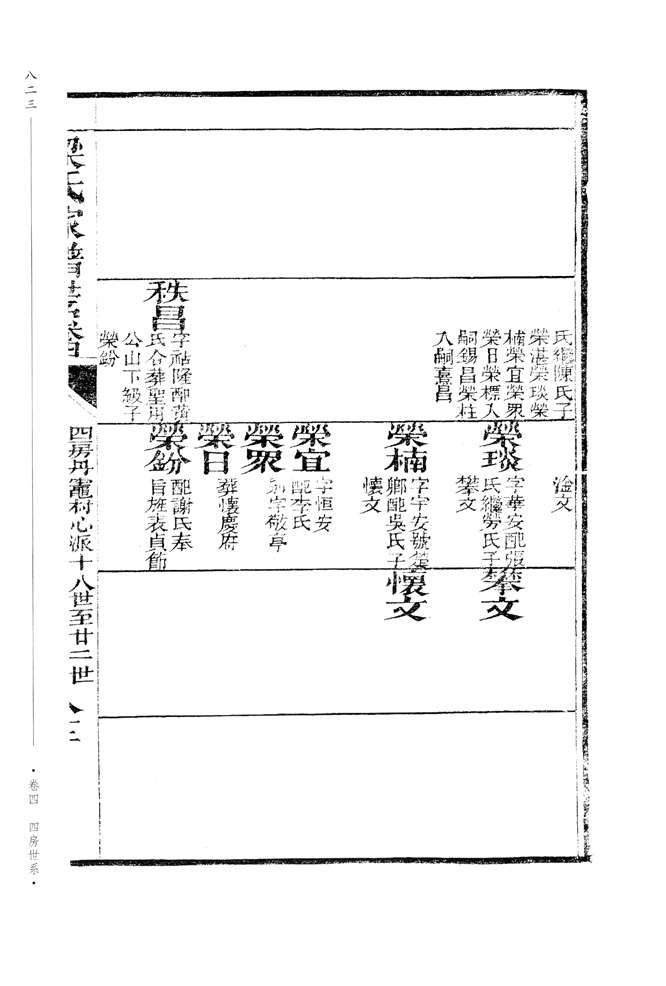 氏繼陳氏子
榮湛榮琰榮
楠榮宜榮眾
榮日榮標入
嗣錫昌榮柱
入嗣熹昌
秩昌
字祜隆配黃
氏合葬聖用
公山下級子
榮鈖
淦文
榮琰
字華安配張
氏繼勞氏子
攀文
榮楠
字宇安號楚
鄉配吳氏子
懷文
榮宜
字恒安
配李氏
榮眾
字敬亭
榮日
葬懷慶府
榮鈖
配謝氏奉
旨旌表貞節
攀文
懷文
梁氏家譜世系卷四
四房丹竈村心派十八世至廿二世
八二三
卷四 四房世系